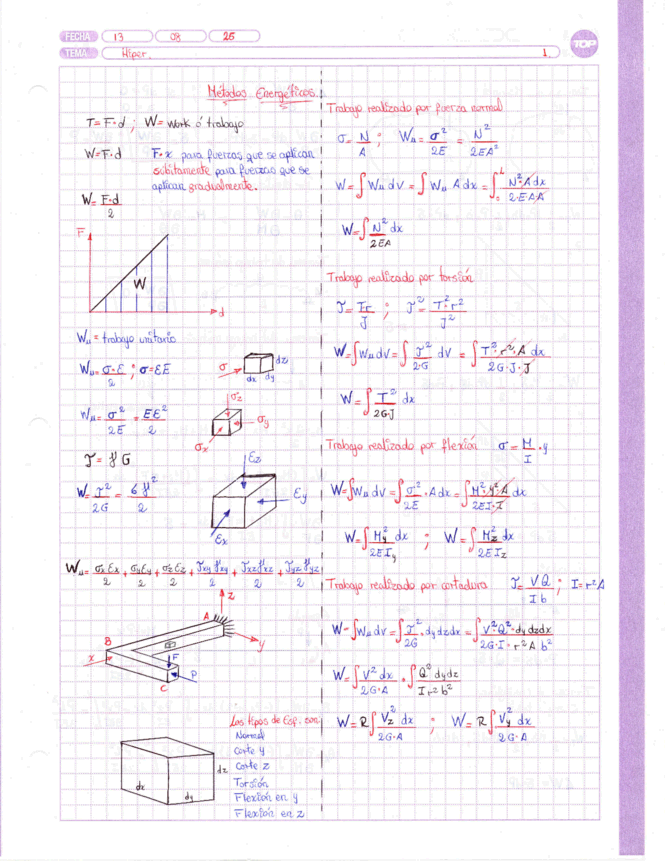 FECHA 13 08 25
TEMA Hiper. 1.
TOP
Métodos Energéticos.
T = F·d ; W = work ó trabajo
W = F·d F·x para fuerzas que se aplican
súbitamente para fuerzas que se
aplican gradualmente.
W = F·d / 2
F
W
d
Wu = trabajo unitario
Wu = σ·ε / 2 ; σ = εE
σ dx dy dz
Wu = σ² / 2E = Eε² / 2
σz
σy
σx
τ = γ G
W = τ² / 2G = G γ² / 2
εz
εy
εx
Wu = σx εx / 2 + σy εy / 2 + σz εz / 2 + τxy γxy / 2 + τxz γxz / 2 + τyz γyz / 2
z
A
B
y
x
F
P
C
Los tipos de Esf. son
Normal
Corte y
Corte z
Torsión
Flexión en y
Flexión en z
dz
dx
dy
Trabajo realizado por fuerza normal
σ = N / A ; Wu = σ² / 2E = N² / 2EA²
W = ∫ Wu dV = ∫ Wu A dx = ∫₀ᴸ N²·A dx / 2·E A A
W = ∫ N² dx / 2EA
Trabajo realizado por torsión
τ = Tr / J ; τ² = T²·r² / J²
W = ∫ Wu dV = ∫ τ² / 2·G dV = ∫ T²·r²·A dx / 2G·J·J
W = ∫ T² / 2G·J dx
Trabajo realizado por flexión σ = M / I · y
W = ∫ Wu dV = ∫ σ² / 2E · A dx = ∫ M²·y²·A / 2EI·I dx
W = ∫ My² dx / 2EIy ; W = ∫ Mz² dx / 2EIz
Trabajo realizado por cortadura τ = VQ / Ib ; I = r²A
W = ∫ Wu dV = ∫ τ² / 2G · dy dz dx = ∫ V²·Q²·dy dz dx / 2G·I·r²A b²
W = ∫ V² dx / 2G·A · ∫ Q² dy dz / I r² b²
W = R ∫ Vz² dx / 2G·A ; W = R ∫ Vy² dx / 2G·A